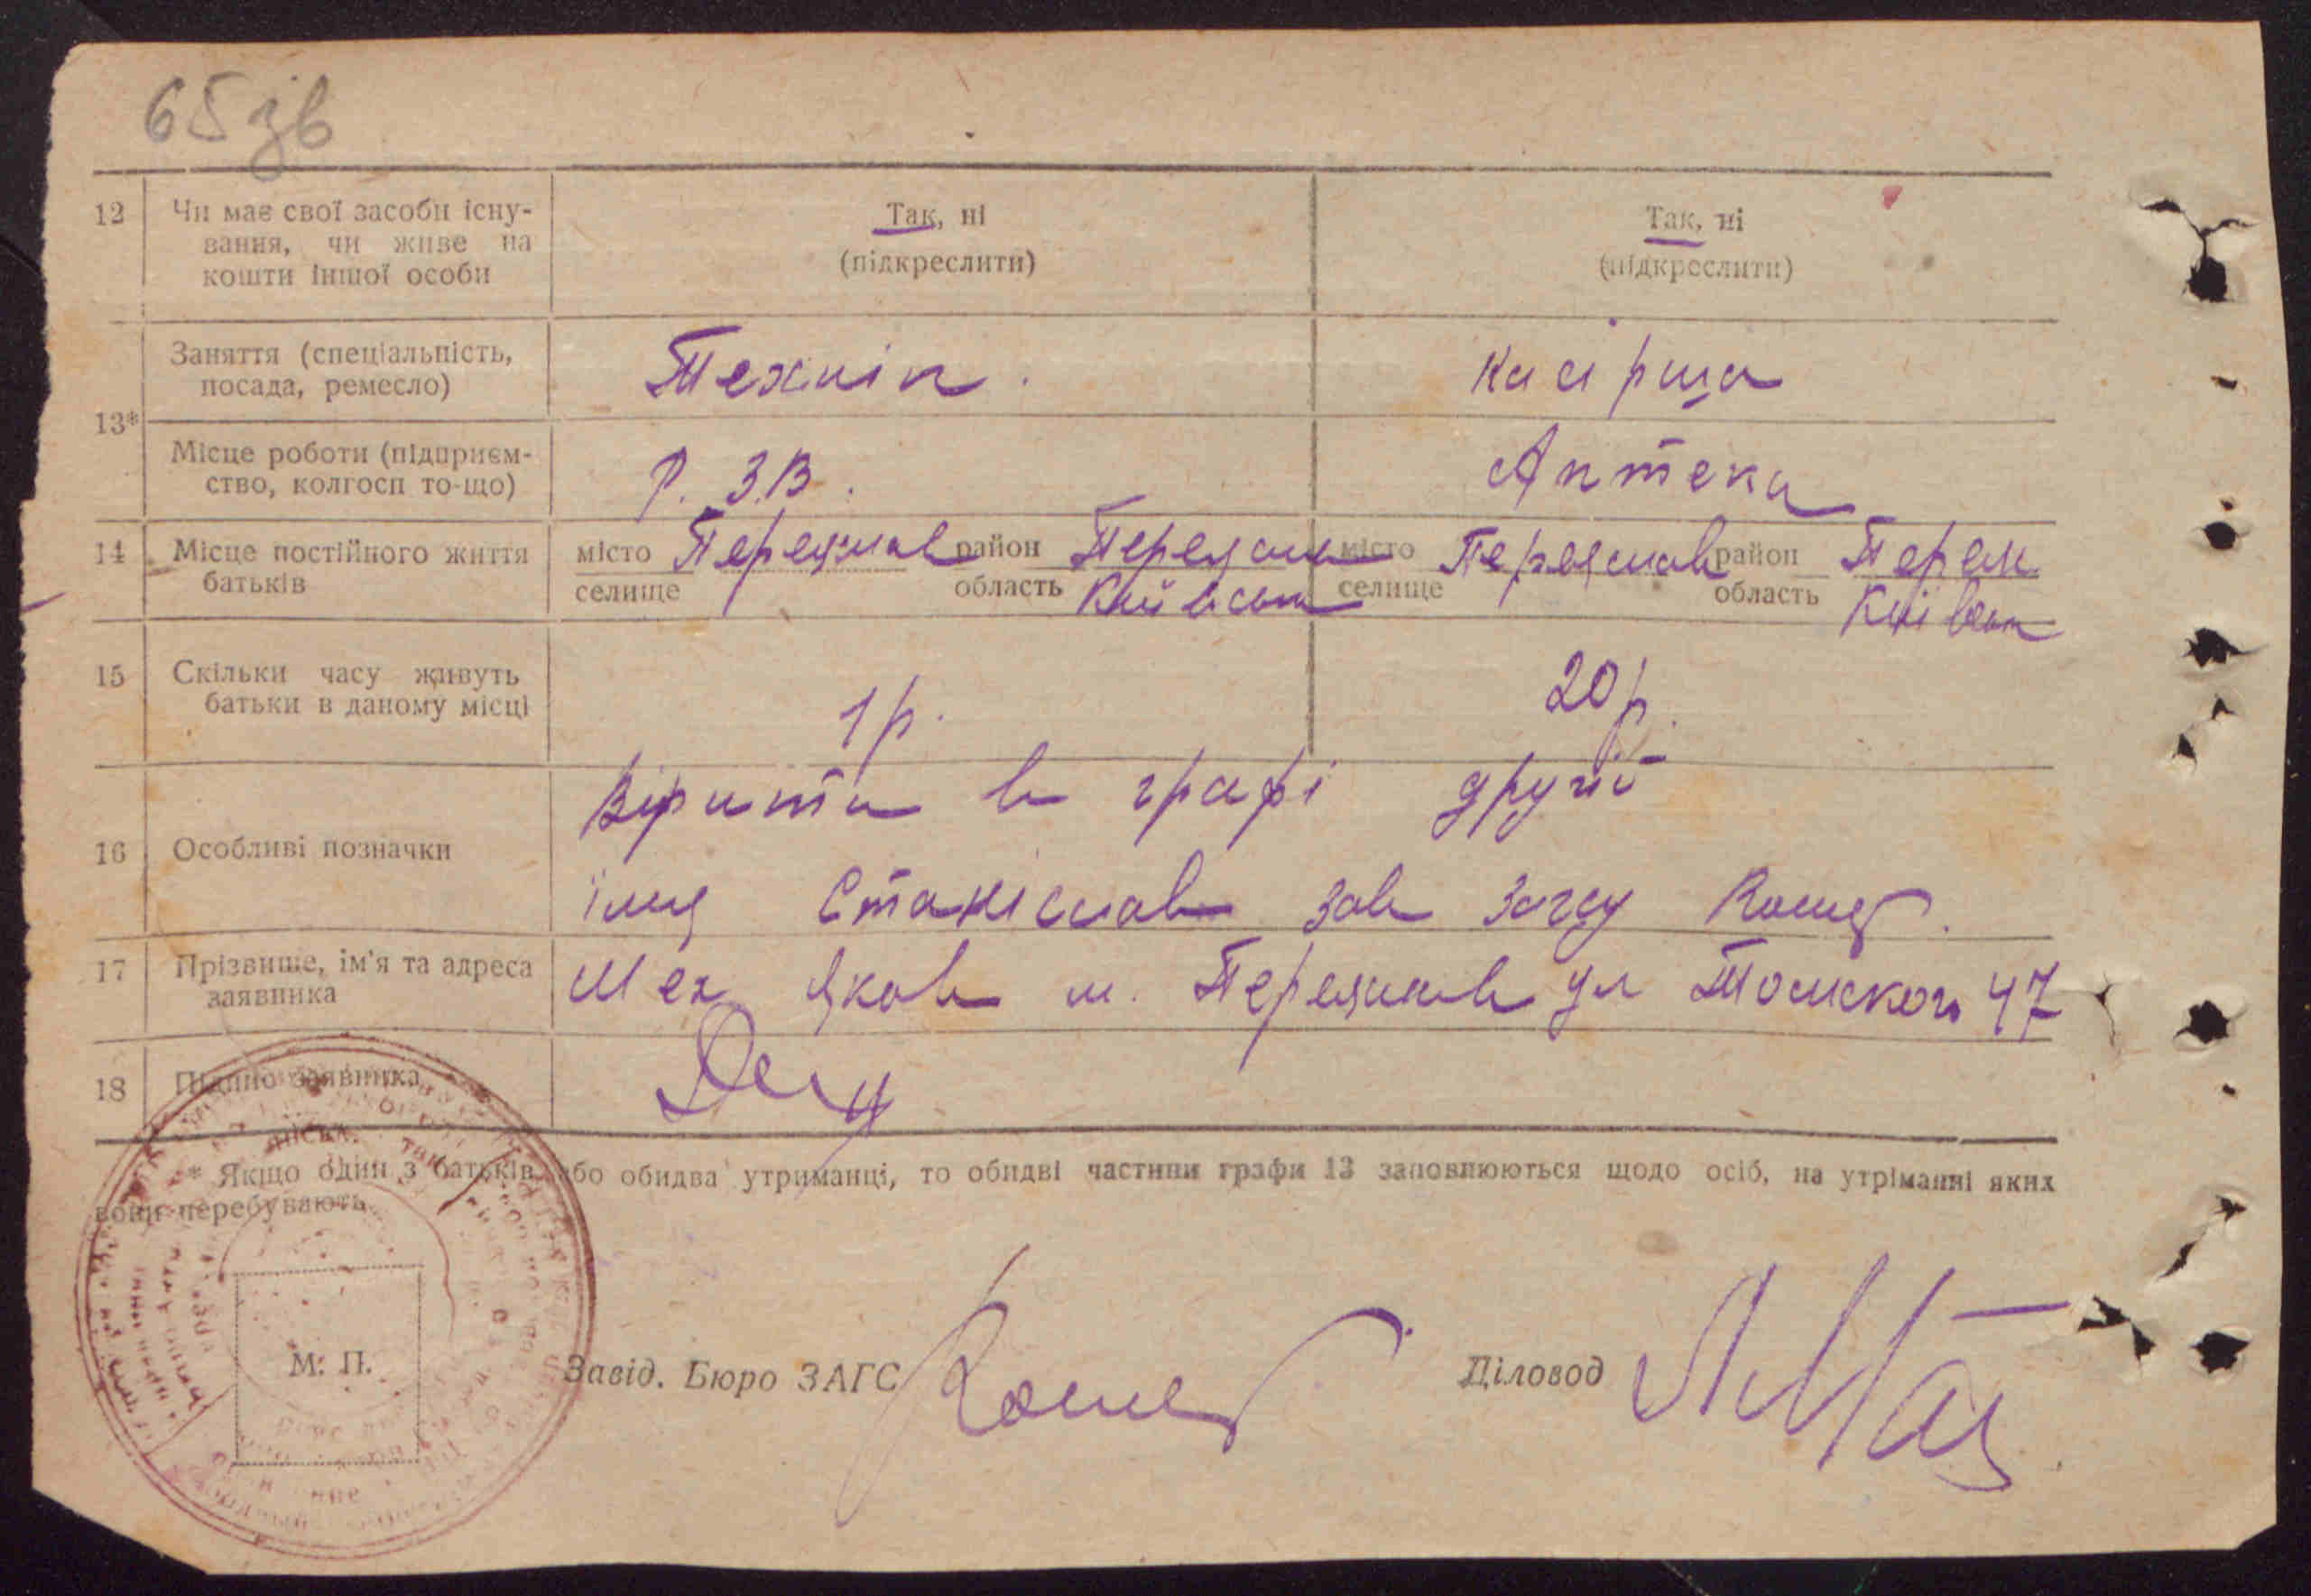 65 зв
12 Чи має свої засоби існу-
вання, чи живе на
кошти іншої особи
Так, ні
(підкреслити)
Так, ні
(підкреслити)
13*
Заняття (спеціальність,
посада, ремесло)
Технік.
Касірша
Місце роботи (підприєм-
ство, колгосп то-що)
Р. З.В.
Аптека
14 Місце постійного життя
батьків
місто Переяслав район Переяслав
селище область Київська
місто Переяслав район Переяс
селище область Київськ
15 Скільки часу живуть
батьки в даному місці
1 р.
20 р.
16 Особливі позначки
Вірити в графі другій
імя Станіслав зав загсу Кошер.
17 Прізвище, ім'я та адреса
заявника
Мех Яков м. Переяслав ул Томского 47
18 Підпис заявника
* Якщо один з батьків, або обидва утриманці, то обидві частини графи 13 заповнюються щодо осіб, на утріманні яких
вони перебувають.
М. П.
Завід. Бюро ЗАГС
Діловод